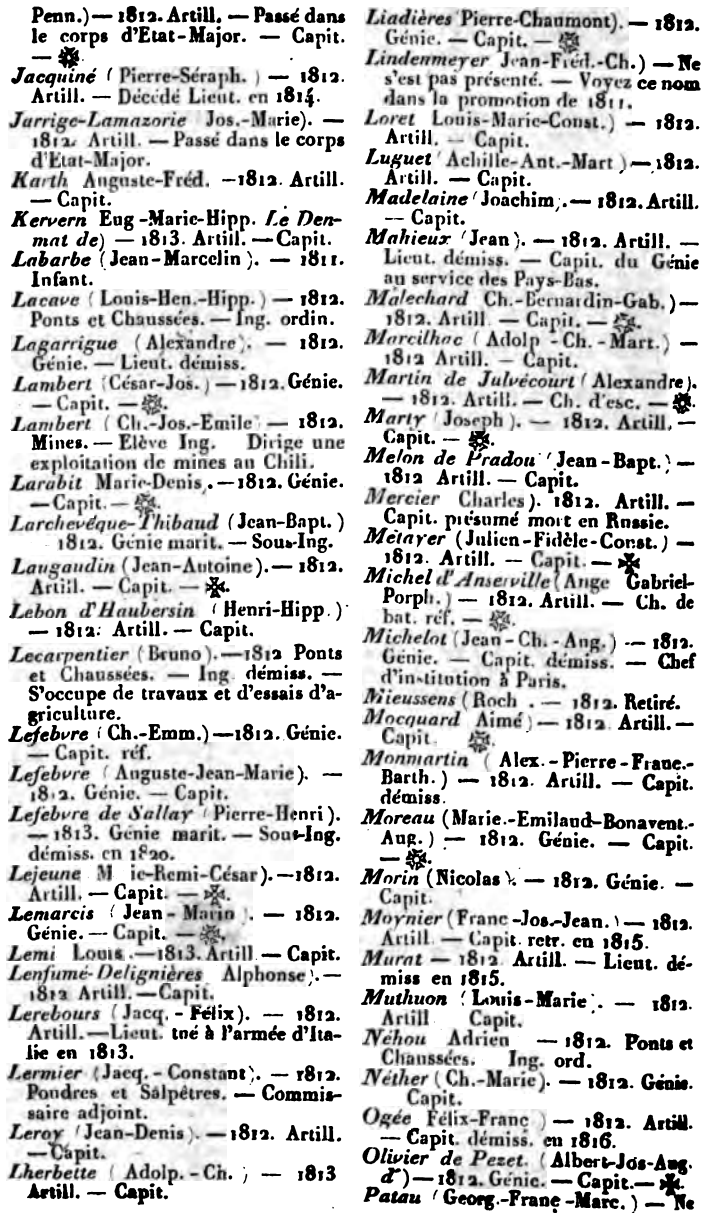 Penn.) — 1812. Artill. — Passé dans
le corps d'Etat-Major. — Capit.
—
Jacquiné (Pierre-Séraph.) — 1812.
Artill. — Décédé Lieut. en 1814.
Jarrige-Lamazorie Jos.-Marie). —
1812. Artill. — Passé dans le corps
d'Etat-Major.
Karth Auguste-Fréd. — 1812. Artill.
— Capit.
Kervern Eug.-Marie-Hipp. Le Den-
mat de) — 1813. Artill. — Capit.
Labarbe (Jean-Marcelin). — 1811.
Infant.
Lacave (Louis-Hen.-Hipp.) — 1812.
Ponts et Chaussées. — Ing. ordin.
Lagarrigue (Alexandre). — 1812.
Génie. — Lieut. démiss.
Lambert (César-Jos.) — 1812. Génie.
— Capit. —
Lambert (Ch.-Jos.-Emile) — 1812.
Mines. — Elève Ing. Dirige une
exploitation de mines au Chili.
Larabit Marie-Denis. — 1812. Génie.
— Capit. —
Larchevéque-Thibaud (Jean-Bapt.)
1812. Génie marit. — Sous-Ing.
Laugaudin (Jean-Antoine). — 1812.
Artill. — Capit. —
Lebon d'Haubersin (Henri-Hipp.)
— 1812. Artill. — Capit.
Lecarpentier (Bruno). — 1812 Ponts
et Chaussées. — Ing. démiss. —
S'occupe de travaux et d'essais d'a-
griculture.
Lefebvre (Ch.-Emm.) — 1812. Génie.
— Capit. réf.
Lefebvre (Auguste-Jean-Marie). —
1812. Génie. — Capit.
Lefebvre de Sallay (Pierre-Henri).
— 1813. Génie marit. — Sous-Ing.
démiss. en 1820.
Lejeune M ie-Remi-César). — 1812.
Artill. — Capit. —
Lemarcis (Jean-Marin). — 1812.
Génie. — Capit. —
Lemi Louis. — 1813. Artill — Capit.
Lenfumé-Delignières Alphonse). —
1812 Artill. — Capit.
Lerebours (Jacq.-Félix). — 1812.
Artill. — Lieut. tué à l'armée d'Ita-
lie en 1813.
Lermier (Jacq.-Constant). — 1812.
Poudres et Salpêtres. — Commis-
saire adjoint.
Leroy (Jean-Denis). — 1812. Artill.
— Capit.
Lherbette (Adolp.-Ch.) — 1813
Artill. — Capit.
Liadières Pierre-Chaumont). — 1812.
Génie. — Capit. —
Lindenmeyer Jean-Fréd.-Ch.) — Ne
s'est pas présenté. — Voyez ce nom
dans la promotion de 1811.
Loret Louis-Marie-Const.) — 1812.
Artill. — Capit.
Luguet (Achille-Ant.-Mart) — 1812.
Artill. — Capit.
Madelaine (Joachim). — 1812. Artill.
— Capit.
Mahieux (Jean). — 1812. Artill. —
Lieut. démiss. — Capit. du Génie
au service des Pays-Bas.
Malechard Ch.-Bernardin-Gab.) —
1812. Artill — Capit. —
Marcilhac (Adolp.-Ch.-Mart.) —
1812 Artill. — Capit.
Martin de Julvécourt (Alexandre).
— 1812. Artill. — Ch. d'esc. —
Marty (Joseph). — 1812. Artill. —
Capit. —
Melon de Pradou (Jean-Bapt.) —
1812 Artill. — Capit.
Mercier Charles). 1812. Artill. —
Capit. présumé mort en Russie.
Métayer (Julien-Fidèle-Const.) —
1812. Artill. — Capit. —
Michel d'Anserville (Ange Gabriel-
Porph.) — 1812. Artill. — Ch. de
bat. réf. —
Michelot (Jean-Ch.-Aug.) — 1812.
Génie. — Capit. démiss. — Chef
d'institution à Paris.
Mieussens (Roch. — 1812. Retiré.
Mocquard Aimé) — 1812. Artill. —
Capit.
Monmartin (Alex.-Pierre-Franc.-
Barth.) — 1812. Artill. — Capit.
démiss.
Moreau (Marie.-Emilaud-Bonavent.-
Aug.) — 1812. Génie. — Capit.
—
Morin (Nicolas). — 1812. Génie. —
Capit.
Moynier (Franc-Jos.-Jean.) — 1812.
Artill. — Capit. retr. en 1815.
Murat — 1812 Artill. — Lieut. dé-
miss en 1815.
Muthuon (Louis-Marie). — 1812.
Artill Capit.
Néhou Adrien — 1812. Ponts et
Chaussées. Ing. ord.
Néther (Ch.-Marie). — 1812. Génie.
Capit.
Ogée Félix-Franc) — 1812. Artill.
— Capit. démiss. en 1816.
Olivier de Pezet. (Albert-Jos-Aug.
d') — 1812. Génie. — Capit. —
Patau (Georg.-Franc-Marc.) — Ne